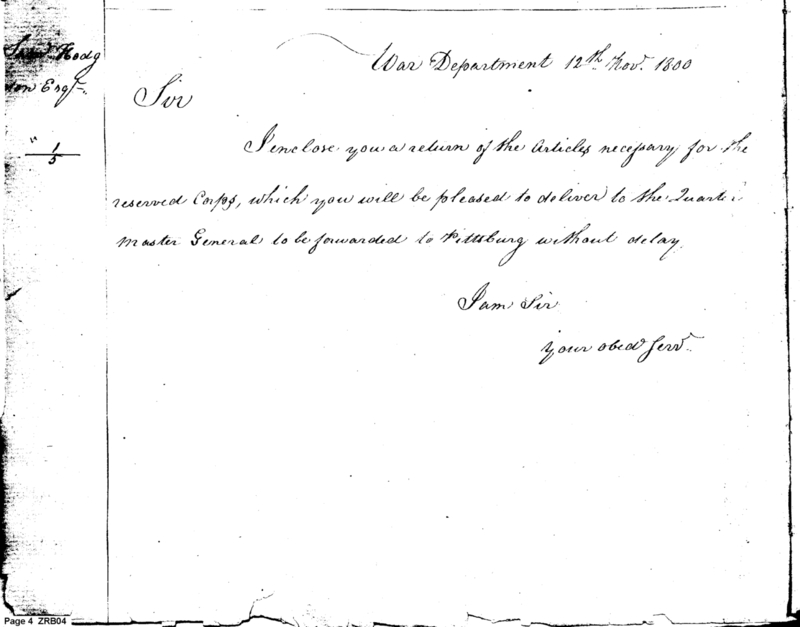 Saml Hodg
son Esqr.
" 1/5
War Department 12th Novr. 1800
Sir
I enclose you a return of the Articles necessary for the
reserved Corps, which you will be pleased to deliver to the Quarter
Master General to be forwarded to Pittsburg without delay.
I am Sir
your obed Serv.
Page 4 ZRB04